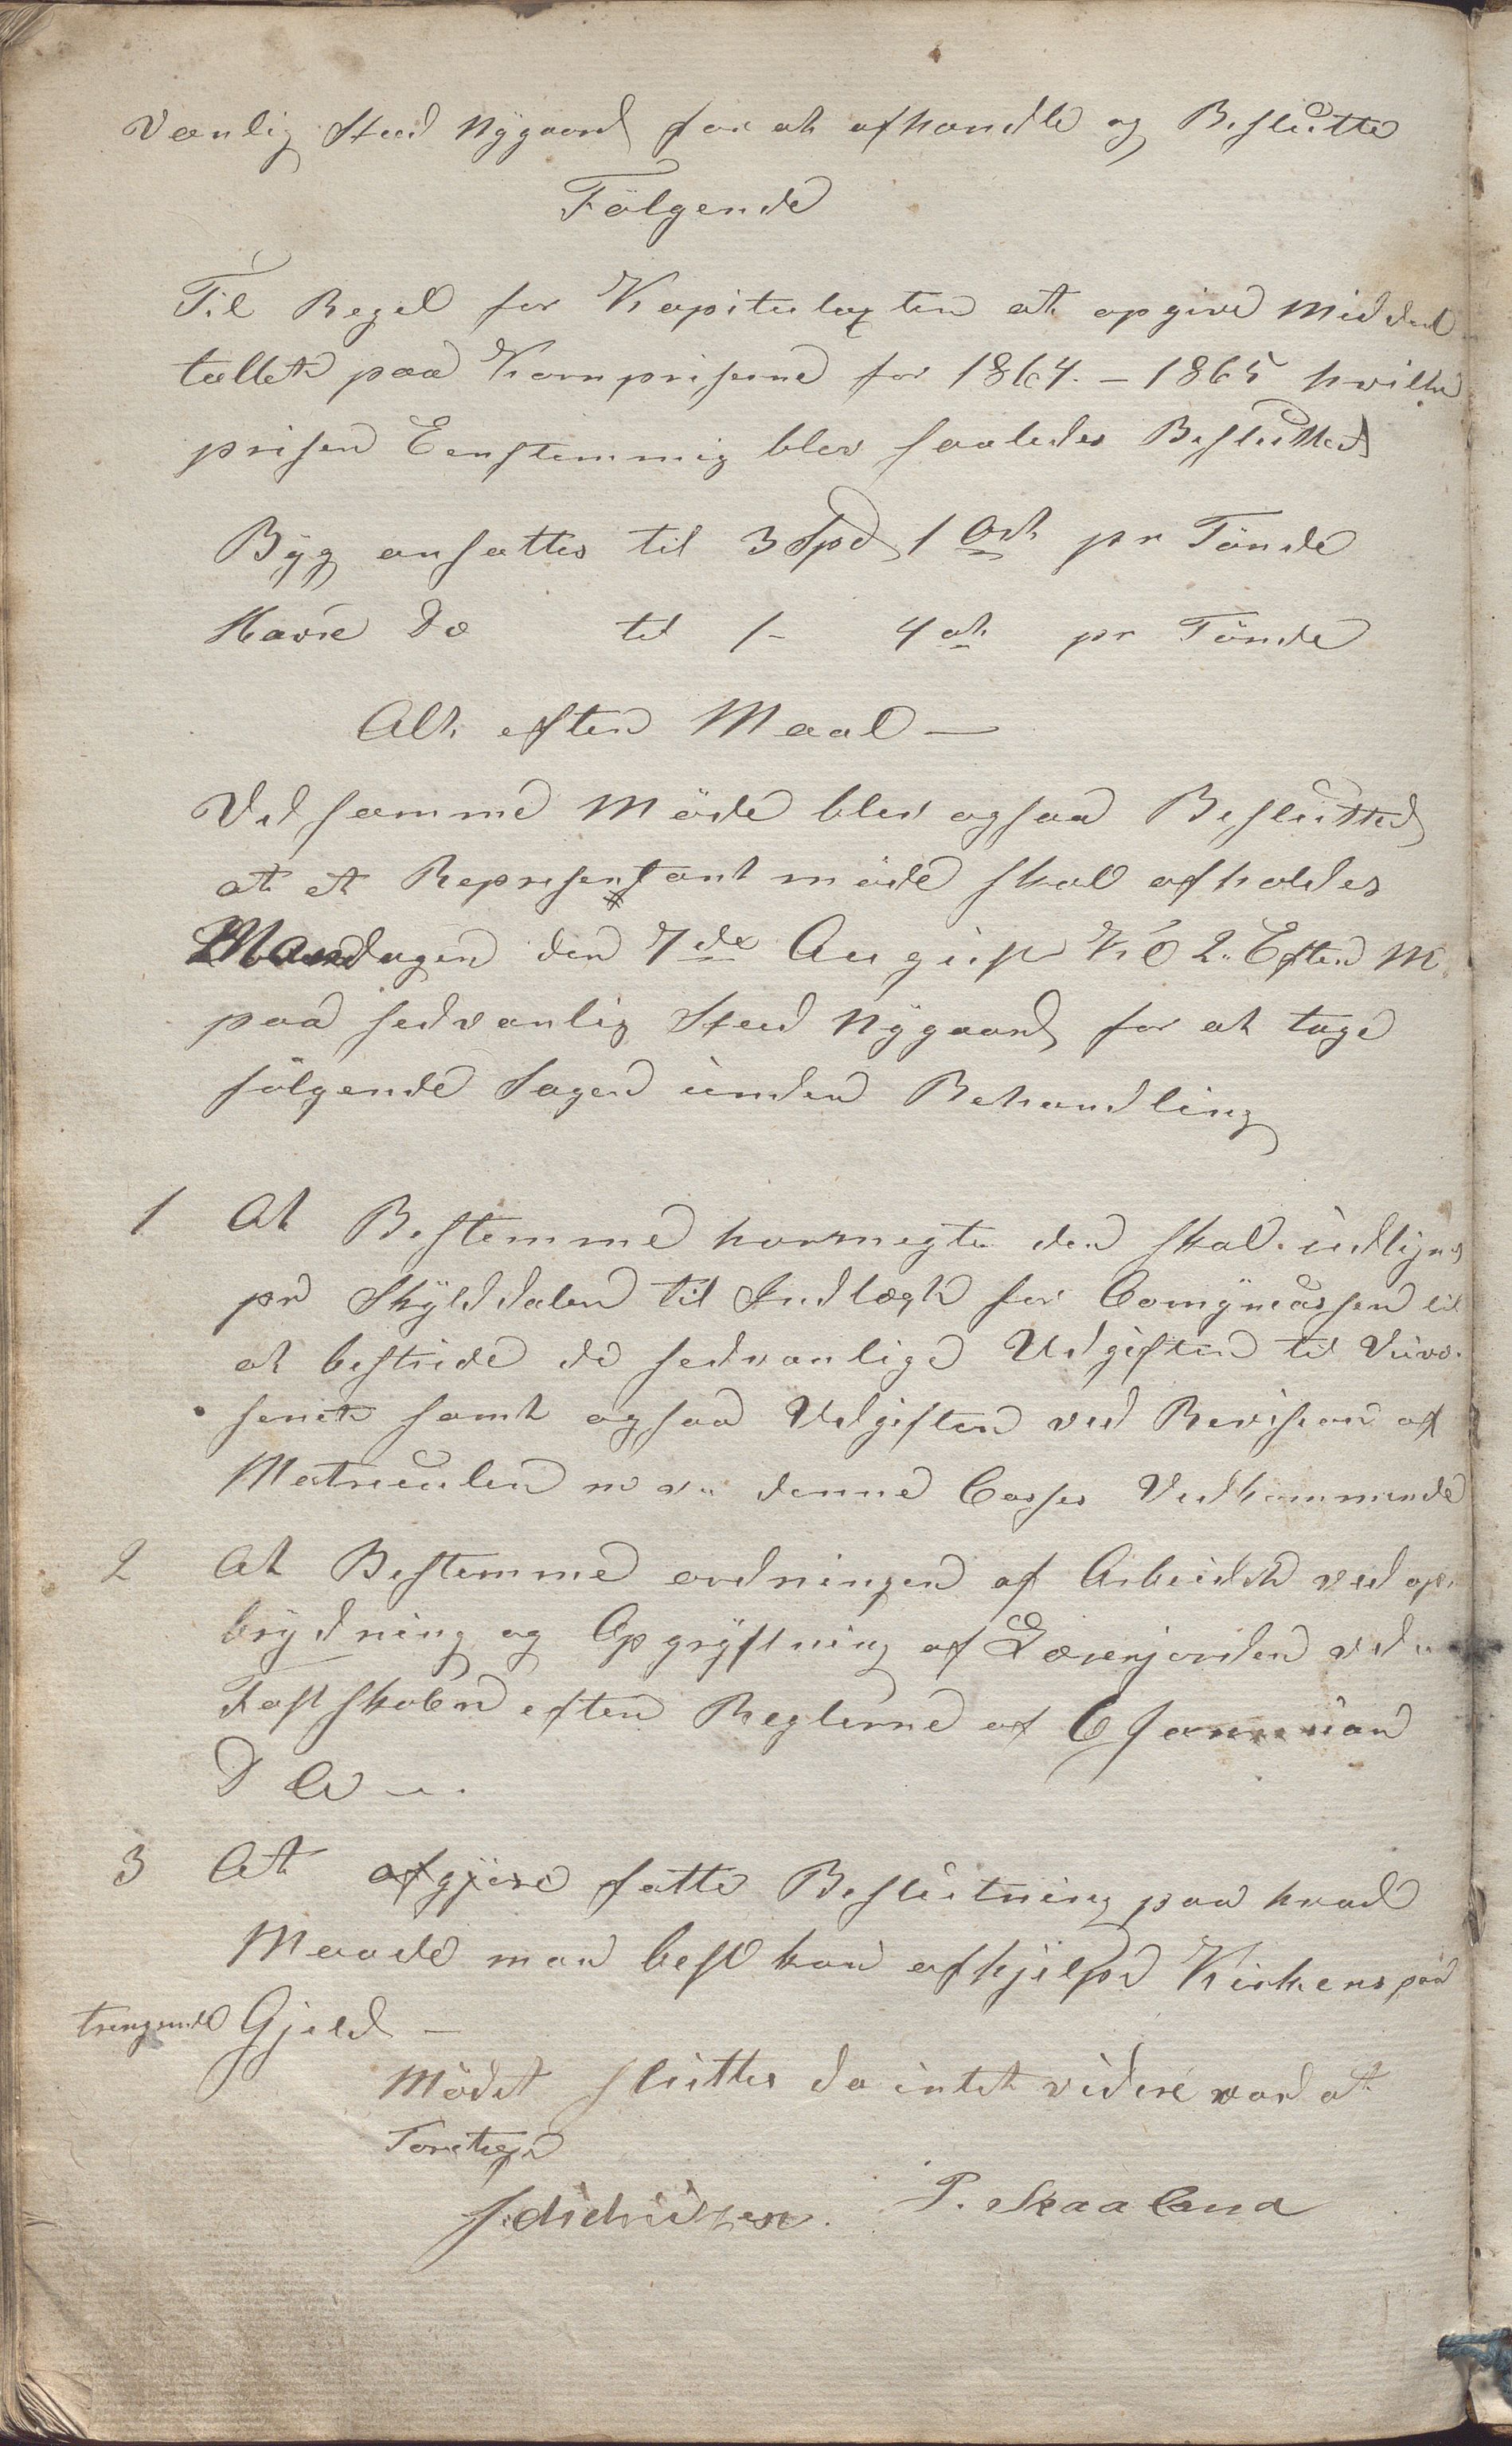 vanlig Sted Nÿgaard for at afhandle og Beslutte
Følgende
Til Regel for Kapitulaxten at opgive Middel
tallet paa Kornpriserne for 1864.-1865 hvilke
priser Eenstemmig blev saaledes Beslutted
Bÿg ansattes til 3 Spd 1 Ort pr Tönde
Havre do til 1- 4 ort pr Tönde
Alt efter Maal —
Ved samme Möde blev ogsaa Beslutted
at et Representant möde skal afholdes
Mandagen den 7de August Kl 2. Efter M.
paa sedvanlig Sted Nÿgaard for at tage
følgende Sager under Behandling
1 At Bestemme hvormeget der skal udlignes
pr Skÿlddaler til Indtægt for Comÿncassen til
at bestride de sedvanlige Udgifter til Væve-
senet samt ogsaa Udgifter ved Revision af
Matriculen m v. denne Casses Vedkommende
2 At Bestemme ordningen af Arbeidet ved op-
brÿdning og Opgrÿftning af Lærerjorden ved
Fastskolen efter Reglerne af 6 Januar
D A —
3 At afgjøre fatte Beslutning paa hvad
Maade man best kan afhjelpe Kirkens paa
trengende Gjeld —
Mödet sluttes da intet videre var at
Foretage
J. Didriksen. T. Skaaland